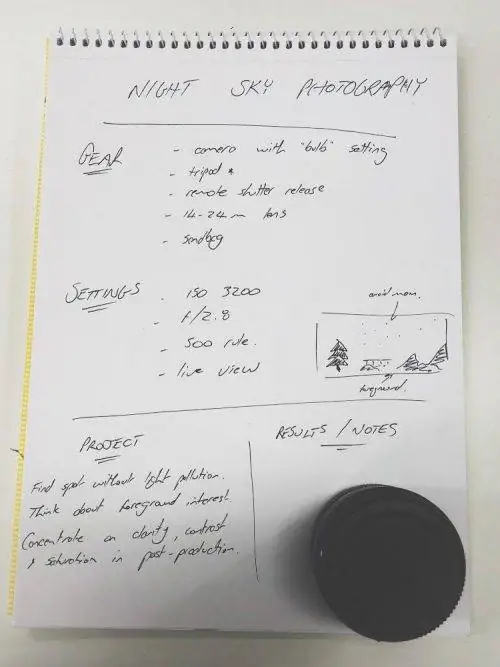 NIGHT SKY PHOTOGRAPHY
GEAR
- camera with "bulb" setting
- tripod *
- remote shutter release
- 14-24m lens
- sandbag
SETTINGS
- ISO 3200
- f/2.8
- 500 rule.
- live view
avoid moon.
foreground.
PROJECT
Find spot without light pollution.
Think about foreground interest.
Concentrate on clarity, contrast
& saturation in post-production.
RESULTS / NOTES